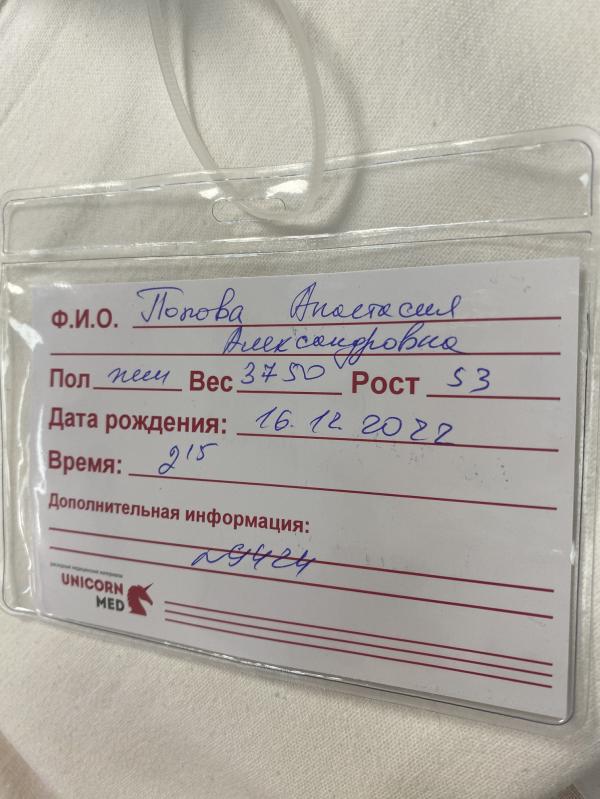 Ф.И.О. Попова Анастасия
Александровна
Пол жен Вес 3750 Рост 53
Дата рождения: 16.12.2022
Время: 2 15
Дополнительная информация:
29424
расходные медицинские материалы
UNICORN
MED